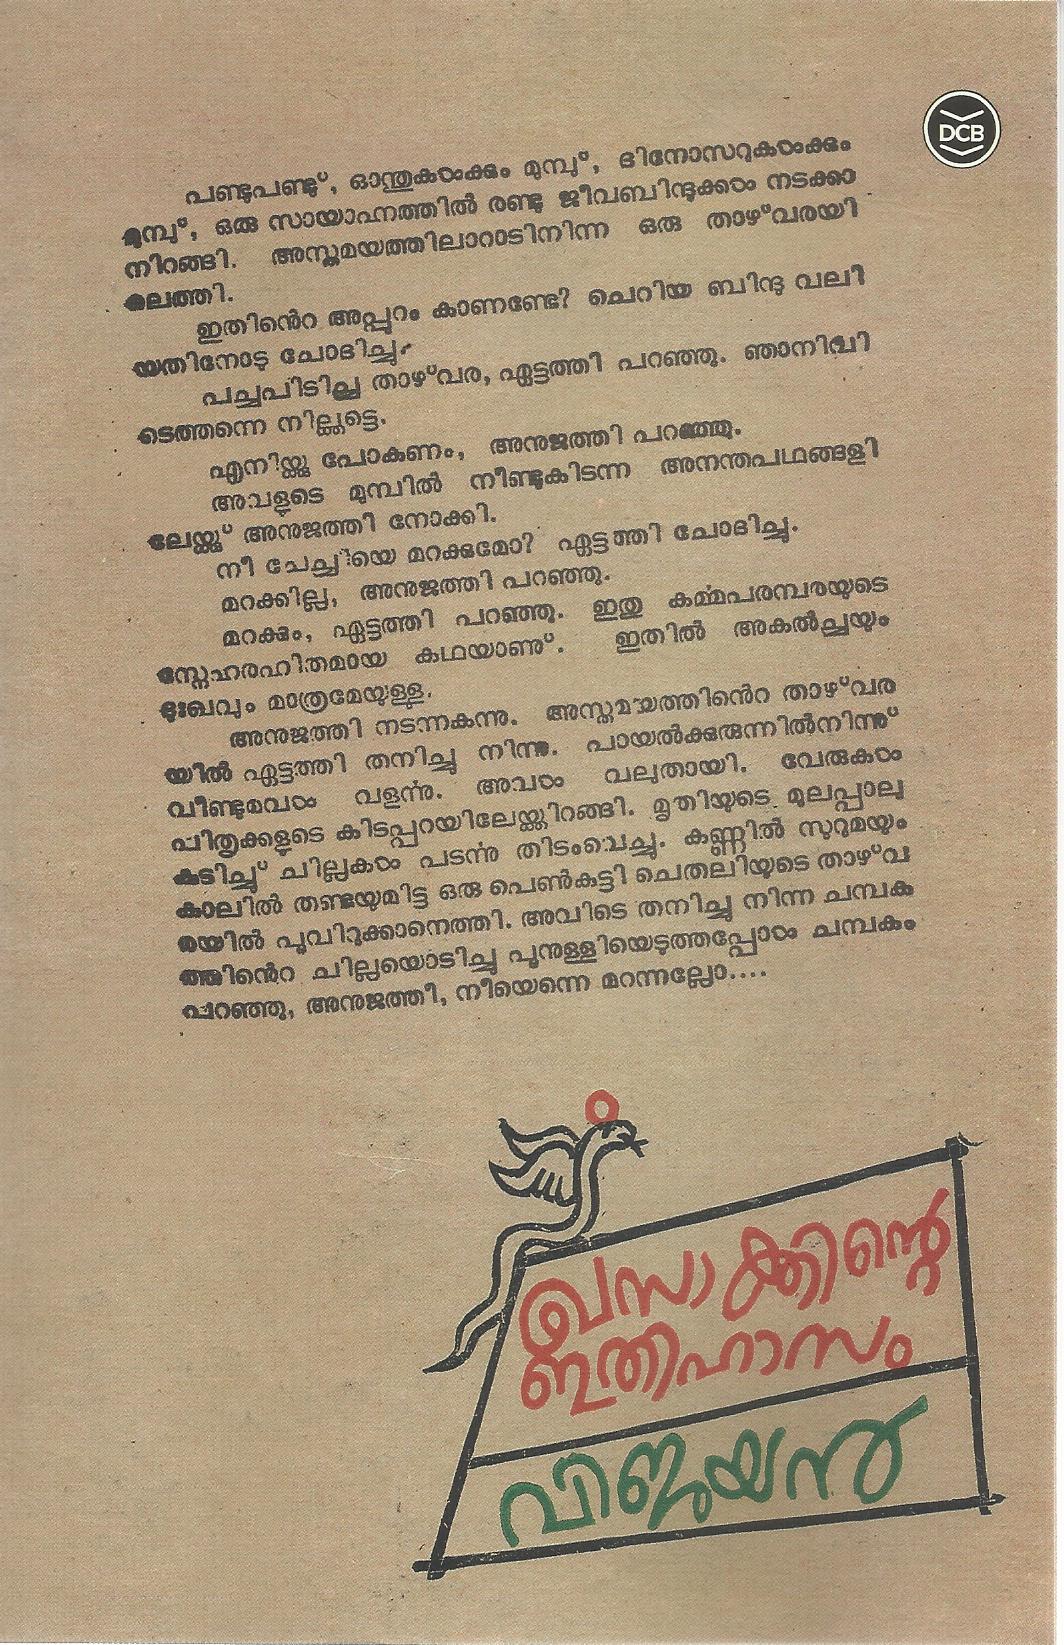 DCB
പണ്ടുപണ്ടു്, ഓന്തുകൾക്കും മുമ്പു്, ദിനോസറുകൾക്കും
മുമ്പു്, ഒരു സായാഹ്നത്തിൽ രണ്ടു ജീവബിന്ദുക്കൾ നടക്കാ
നിറങ്ങി. അസ്തമയത്തിലാറാടിനിന്ന ഒരു താഴ്‌വരയി
ലെത്തി.
ഇതിൻെറ അപ്പുറം കാണണ്ടേ? ചെറിയ ബിന്ദു വലി
യതിനോടു ചോദിച്ചു.
പച്ചപിടിച്ച താഴ്‌വര, ഏട്ടത്തി പറഞ്ഞു. ഞാനിവി
ടെത്തന്നെ നില്ക്കട്ടെ.
എനിയ്ക്കു പോകണം, അനുജത്തി പറഞ്ഞു.
അവളുടെ മുമ്പിൽ നീണ്ടുകിടന്ന അനന്തപഥങ്ങളി
ലേയ്ക്കു് അനുജത്തി നോക്കി.
നീ ചേച്ചിയെ മറക്കുമോ? ഏട്ടത്തി ചോദിച്ചു.
മറക്കില്ല, അനുജത്തി പറഞ്ഞു.
മറക്കും, ഏട്ടത്തി പറഞ്ഞു. ഇതു കൎമ്മപരമ്പരയുടെ
സ്നേഹരഹിതമായ കഥയാണു്. ഇതിൽ അകൽച്ചയും
ദുഃഖവും മാത്രമേയുള്ളു.
അനുജത്തി നടന്നകന്നു. അസ്തമയത്തിൻെറ താഴ്‌വര
യിൽ ഏട്ടത്തി തനിച്ചു നിന്നു. പായൽക്കുരുന്നിൽനിന്നു്
വീണ്ടുമവൾ വളൎന്നു. അവൾ വലുതായി. വേരുകൾ
പിതൃക്കളുടെ കിടപ്പറയിലേയ്ക്കിറങ്ങി. മൃതിയുടെ മുലപ്പാലു
കുടിച്ചു് ചില്ലകൾ പടൎന്നു തിടംവെച്ചു. കണ്ണിൽ സുറുമയും
കാലിൽ തണ്ടയുമിട്ട ഒരു പെൺകുട്ടി ചെതലിയുടെ താഴ്‌വ
രയിൽ പൂവിറുക്കാനെത്തി. അവിടെ തനിച്ചു നിന്ന ചമ്പക
ത്തിൻെറ ചില്ലയൊടിച്ചു പൂനുള്ളിയെടുത്തപ്പോൾ ചമ്പകം
പറഞ്ഞു, അനുജത്തീ, നീയെന്നെ മറന്നല്ലോ....
ഖസാക്കിന്റെ
ഇതിഹാസം
വിജയൻ